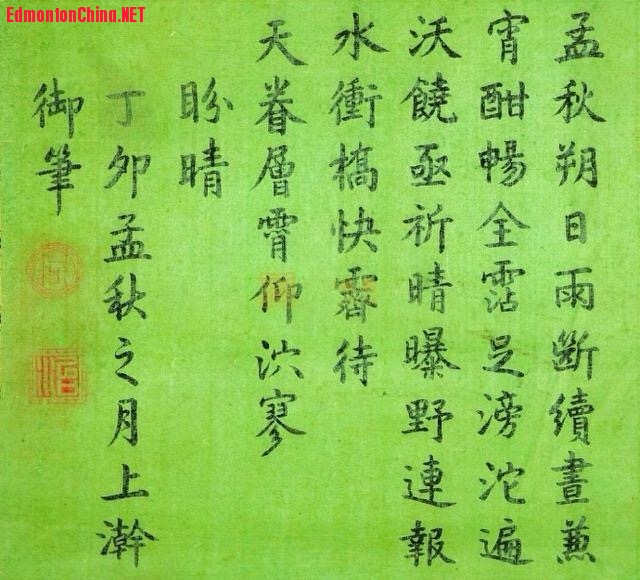 EdmontonChina.NET
孟秋朔日雨斷續晝兼
宵酣暢全霑足滂沱遍
沃饒亟祈晴曝野連報
水衝槁快霽待
天眷層霄仰泬寥
盼晴
丁卯孟秋之月上澣
御筆